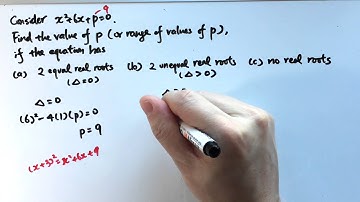 Consider x²+6x+p=0.
9
Find the value of p (or range of values of p),
if the equation has
(a) 2 equal real roots (b) 2 unequal real roots (c) no real roots
(△=0) (△>0)
△=0
(6)²-4(1)(p)=0
p=9
(x+3)²=x²+6x+9